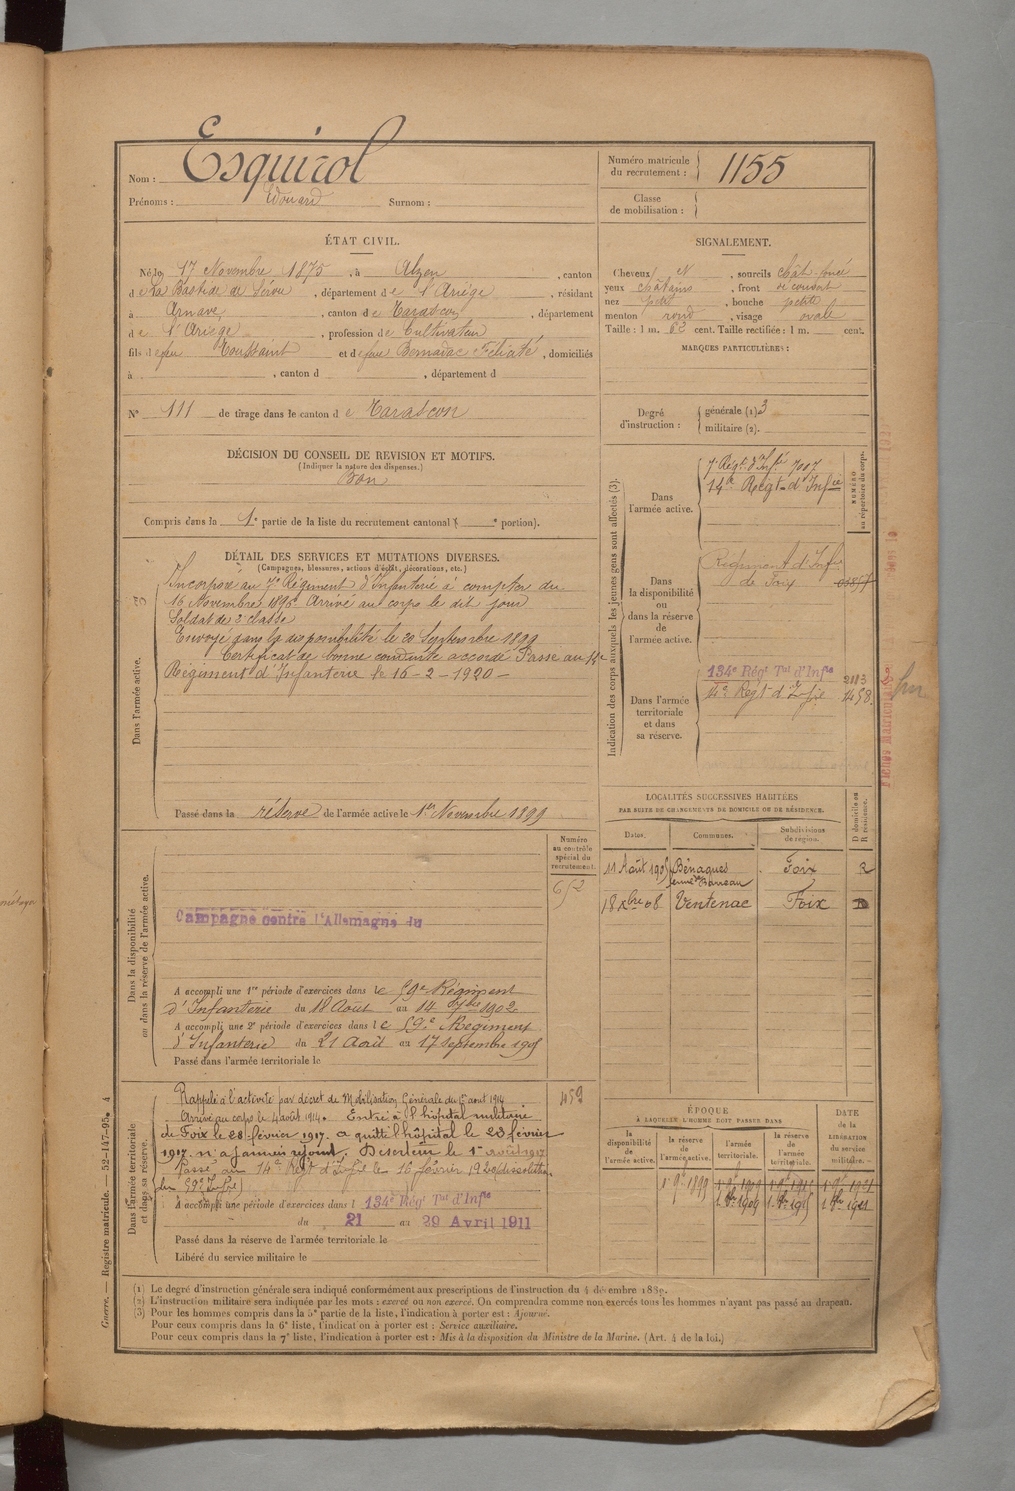 Nom : Esquirol
Prénoms : Edouard Surnom :
Numéro matricule du recrutement : 1155
Classe de mobilisation :
ÉTAT CIVIL.
Né le 17 Novembre 1875, à Alzen, canton
de La Bastide de Sérou, département de l'Ariège, résidant
à Arnave, canton de Tarascon, département
de l'Ariège, profession de Cultivateur
fils de feu Toussaint et de feue Bernadac Félicité, domiciliés
à , canton d , département d
N° 111 de tirage dans le canton de Tarascon
SIGNALEMENT.
Cheveux et, sourcils chât. foncé
yeux châtains, front recouvert
nez petit, bouche petite
menton rond, visage ovale
Taille : 1 m. 62 cent. Taille rectifiée : 1 m. cent.
MARQUES PARTICULIÈRES :
Degré d'instruction : générale (1). 3
militaire (2).
DÉCISION DU CONSEIL DE REVISION ET MOTIFS.
(Indiquer la nature des dispenses.)
Bon
Compris dans la 1e partie de la liste du recrutement cantonal ( e portion).
DÉTAIL DES SERVICES ET MUTATIONS DIVERSES.
(Campagnes, blessures, actions d'éclat, décorations, etc.)
Dans l'armée active.
Incorporé au 7e Régiment d'Infanterie à compter du
16 Novembre 1896. Arrivé au corps le dit jour
Soldat de 2e classe
Envoyé dans la disponibilité le 20 Septembre 1899
Certificat de bonne conduite accordé Passé au 14e
Régiment d'Infanterie le 16-2-1920 -
Passé dans la réserve de l'armée active le 1er Novembre 1899
Indication des corps auxquels les jeunes gens sont affectés (3).
NUMÉRO au répertoire du corps.
Dans l'armée active.
7e Régt d'Infie 7007
14e Régt d'Infie
Dans la disponibilité ou dans la réserve de l'armée active.
Régiment d'Infie
de Foix
Dans l'armée territoriale et dans sa réserve.
134e Régt Tal d'Infie 2113
14e Régt d'Infie 1458
LOCALITÉS SUCCESSIVES HABITÉES
PAR SUITE DE CHANGEMENTS DE DOMICILE OU DE RÉSIDENCE.
Dates. Communes. Subdivisions de région. D domicile ou R résidence.
11 Août 1905 Bénagues Foix R
ferme de Barreau
18 Xbre 08 Ventenac Foix D
Dans la disponibilité ou dans la réserve de l'armée active.
Numéro au contrôle spécial du recrutement.
652
Campagne contre l'Allemagne du
A accompli une 1re période d'exercices dans le 59e Régiment
d'Infanterie du 18 Août au 14 7bre 1902
A accompli une 2e période d'exercices dans le 59e Régiment
d'Infanterie du 21 Août au 17 Septembre 1905
Passé dans l'armée territoriale le
Dans l'armée territoriale et dans sa réserve.
459
Rappelé à l'activité par décret de Mobilisation Générale du 1er août 1914
Arrivé au corps le 4 août 1914. Entré à l'hôpital militaire
de Foix le 28 février 1917. a quitté l'hôpital le 23 février
1917. n'a jamais rejoint. Déserteur le 1er août 1917
Passé au 14e Régt d'Infie le 16 février 1920 (dissolution
du 59e Infie)
A accompli une période d'exercices dans l 134e Régt Tal d'Infie
du 21 au 29 Avril 1911
Passé dans la réserve de l'armée territoriale le
Libéré du service militaire le
ÉPOQUE
À LAQUELLE L'HOMME DOIT PASSER DANS
la disponibilité de l'armée active. la réserve de l'armée active. l'armée territoriale. la réserve de l'armée territoriale. DATE de la LIBÉRATION du service militaire.
1er 9bre 1899 1er 9bre 1909 1er 9bre 1915 1er 9bre 1921
1er 8bre 1909 1er 8bre 1915 1er 8bre 1921
(1) Le degré d'instruction générale sera indiqué conformément aux prescriptions de l'instruction du 4 décembre 1889.
(2) L'instruction militaire sera indiquée par les mots : exercé ou non exercé. On comprendra comme non exercés tous les hommes n'ayant pas passé au drapeau.
(3) Pour les hommes compris dans la 5e partie de la liste, l'indication à porter est : Ajourné.
Pour ceux compris dans la 6e liste, l'indication à porter est : Service auxiliaire.
Pour ceux compris dans la 7e liste, l'indication à porter est : Mis à la disposition du Ministre de la Marine. (Art. 4 de la loi.)
Guerre. — Registre matricule. — 52-147-95. 4